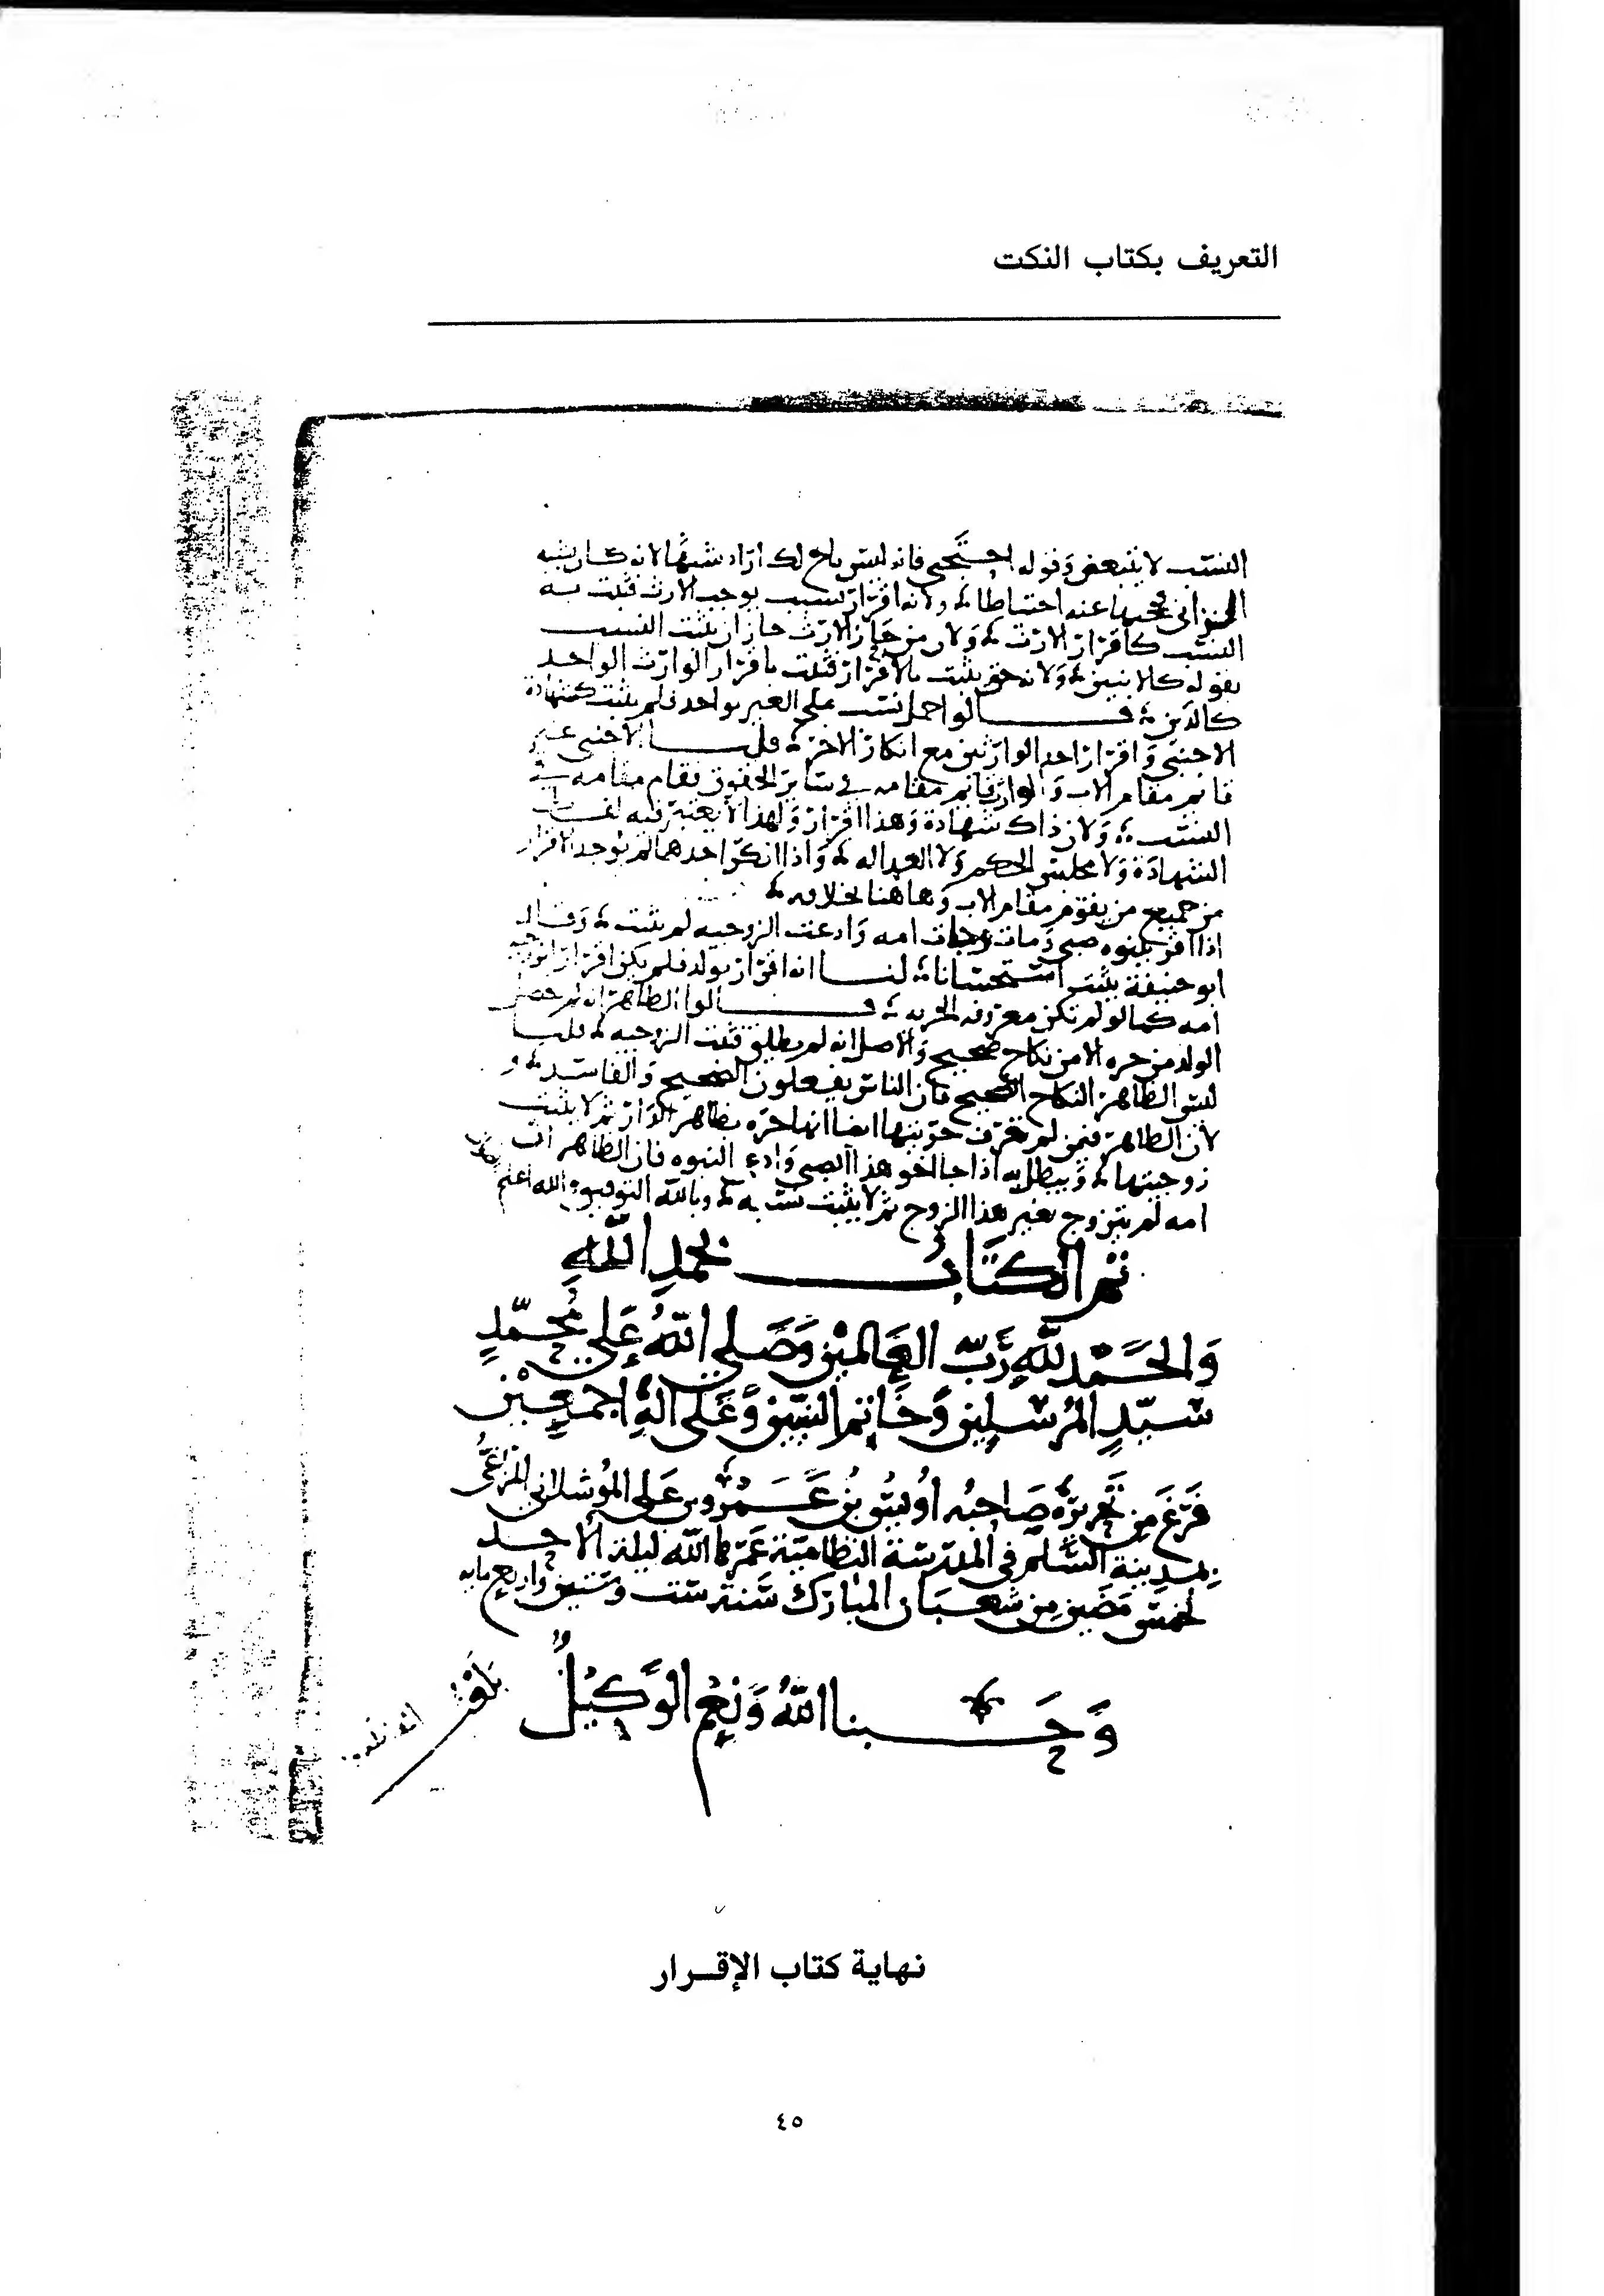 التعريف بكتاب النكت
النسب لا يتبعض وقوله احتجبي فانه ليس باخ لك اراد شبها لانه كان يشبه
الزاني فحجبها عنه احتياطا ولانه اقرار بسبب يوجب الارث فثبت به
النسب كاقرار الارث ولان من حاز الارث جاز ان يثبت النسب
بقوله كالابنين ولانه حق يثبت بالاقرار فثبت باقرار الوارث الواحد
كالدين قالوا حمل نسب على الغير بواحد فلم يثبت كشهادة
الاجنبي واقرار احد الوارثين مع انكار الاخر قلنا الاجنبي غير
قائم مقام الاب والوارث قائم مقامه في سائر الحقوق فقام مقامه في
النسب ولان ذاك شهادة وهذا اقرار ولهذا لا يعتبر فيه لفظ
الشهادة ولا مجلس الحكم ولا العداله واذا انكر احدهما لم يوجد الاقرار
من جميع من يقوم مقام الاب وهاهنا بخلافه
اذا اقر ببنوه صبي ومات وجات امه وادعت الزوجيه لم يثبت وقال
ابو حنيفة يثبت استحسانا لنا انه اقرار بولد فلم يكن اقرارا بزوجيه
امه كما لو لم تكن معروفه الحريه قالوا الظاهر انه لم يحصل
الولد من حره الا من نكاح صحيح والاصل انه لم يطلق فثبت الزوجيه قلنا
ليس الظاهر النكاح الصحيح فان الناس يفعلون الصحيح والفاسد و
لان الظاهر فيمن لم تعرف حريتها ايضا انها حره بظاهر الدار ثم لا يثبت
زوجيتها ويبطل به اذا جا اخو هذا الصبي وادعى البنوه فان الظاهر ان
امه لم تتزوج بغير هذا الزوج ثم لا يثبت نسبه وبالله التوفيق والله اعلم
تم الكتاب بحمد الله
والحمد لله رب العالمين وصلى الله على محمد
سيد المرسلين وخاتم النبيين وعلى اله اجمعين
فرغ من تحريره صاحبه اويس بن عمرو بن علي الموشلاني المراغي
بمدينة السلم في المدرسة النظامية عمرها الله ليلة الاحد
لخمس مضين من شعبان المبارك سنة ست وستين واربع مايه
وحسبنا الله ونعم الوكيل
نهاية كتاب الإقرار
٤٥